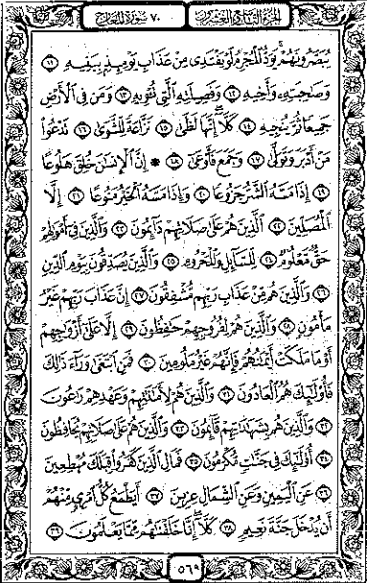 الجزء التاسع والعشرون
٧٠ سورة المعارج
يُبَصَّرُونَهُمْ يَوَدُّ الْمُجْرِمُ لَوْ يَفْتَدِى مِنْ عَذَابِ يَوْمِئِذٍ بِبَنِيهِ ١١
وَصَاحِبَتِهِ وَأَخِيهِ ١٢ وَفَصِيلَتِهِ الَّتِى تُـْٔوِيهِ ١٣ وَمَن فِى الْأَرْضِ
جَمِيعًا ثُمَّ يُنجِيهِ ١٤ كَلَّا إِنَّهَا لَظَىٰ ١٥ نَزَّاعَةً لِّلشَّوَىٰ ١٦ تَدْعُوا
مَنْ أَدْبَرَ وَتَوَلَّىٰ ١٧ وَجَمَعَ فَأَوْعَىٰ ١٨ * إِنَّ الْإِنسَانَ خُلِقَ هَلُوعًا
١٩ إِذَا مَسَّهُ الشَّرُّ جَزُوعًا ٢٠ وَإِذَا مَسَّهُ الْخَيْرُ مَنُوعًا ٢١ إِلَّا
الْمُصَلِّينَ ٢٢ الَّذِينَ هُمْ عَلَىٰ صَلَاتِهِمْ دَائِمُونَ ٢٣ وَالَّذِينَ فِى أَمْوَالِهِمْ
حَقٌّ مَّعْلُومٌ ٢٤ لِّلسَّائِلِ وَالْمَحْرُومِ ٢٥ وَالَّذِينَ يُصَدِّقُونَ بِيَوْمِ الدِّينِ
٢٦ وَالَّذِينَ هُم مِّنْ عَذَابِ رَبِّهِم مُّشْفِقُونَ ٢٧ إِنَّ عَذَابَ رَبِّهِمْ غَيْرُ
مَأْمُونٍ ٢٨ وَالَّذِينَ هُمْ لِفُرُوجِهِمْ حَافِظُونَ ٢٩ إِلَّا عَلَىٰ أَزْوَاجِهِمْ
أَوْ مَا مَلَكَتْ أَيْمَانُهُمْ فَإِنَّهُمْ غَيْرُ مَلُومِينَ ٣٠ فَمَنِ ابْتَغَىٰ وَرَاءَ ذَٰلِكَ
فَأُولَٰئِكَ هُمُ الْعَادُونَ ٣١ وَالَّذِينَ هُمْ لِأَمَانَاتِهِمْ وَعَهْدِهِمْ رَاعُونَ
٣٢ وَالَّذِينَ هُم بِشَهَادَاتِهِمْ قَائِمُونَ ٣٣ وَالَّذِينَ هُمْ عَلَىٰ صَلَاتِهِمْ يُحَافِظُونَ
٣٤ أُولَٰئِكَ فِى جَنَّاتٍ مُّكْرَمُونَ ٣٥ فَمَالِ الَّذِينَ كَفَرُوا قِبَلَكَ مُهْطِعِينَ
٣٦ عَنِ الْيَمِينِ وَعَنِ الشِّمَالِ عِزِينَ ٣٧ أَيَطْمَعُ كُلُّ امْرِئٍ مِّنْهُمْ
أَن يُدْخَلَ جَنَّةَ نَعِيمٍ ٣٨ كَلَّا إِنَّا خَلَقْنَاهُم مِّمَّا يَعْلَمُونَ ٣٩
٥٦٩